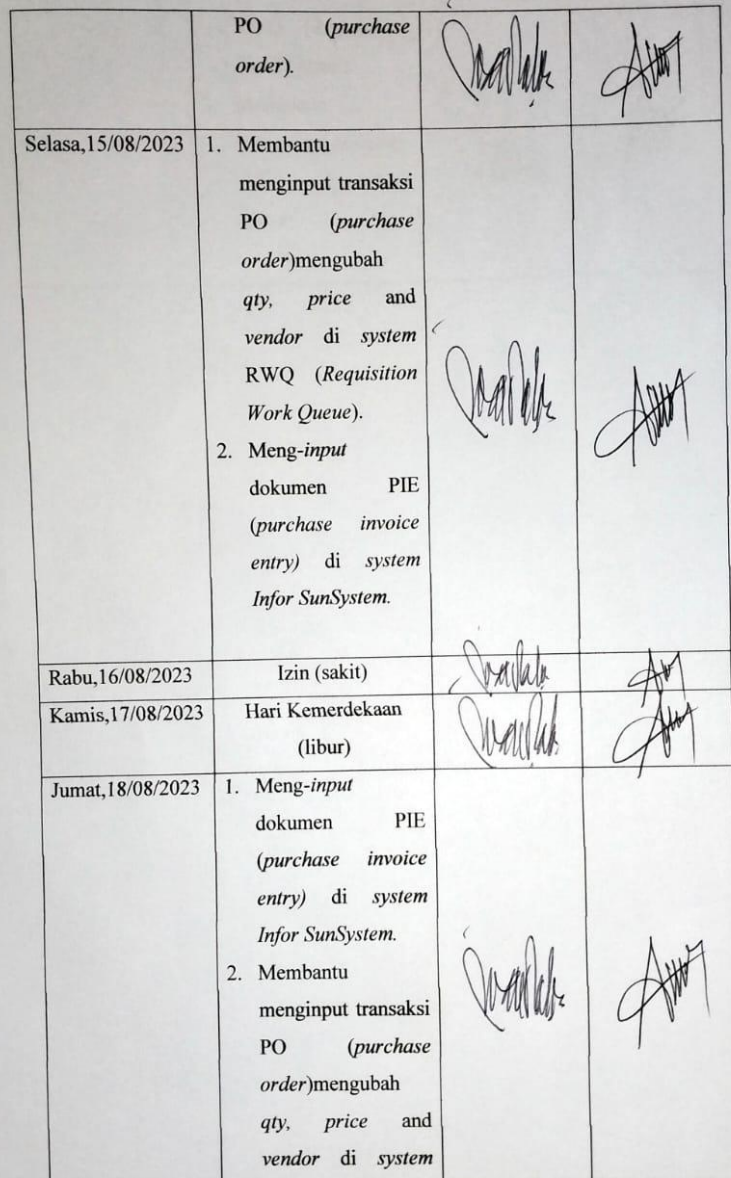 PO (purchase
order).
Selasa,15/08/2023
1. Membantu
menginput transaksi
PO (purchase
order)mengubah
qty, price and
vendor di system
RWQ (Requisition
Work Queue).
2. Meng-input
dokumen PIE
(purchase invoice
entry) di system
Infor SunSystem.
Rabu,16/08/2023
Izin (sakit)
Kamis,17/08/2023
Hari Kemerdekaan
(libur)
Jumat,18/08/2023
1. Meng-input
dokumen PIE
(purchase invoice
entry) di system
Infor SunSystem.
2. Membantu
menginput transaksi
PO (purchase
order)mengubah
qty, price and
vendor di system